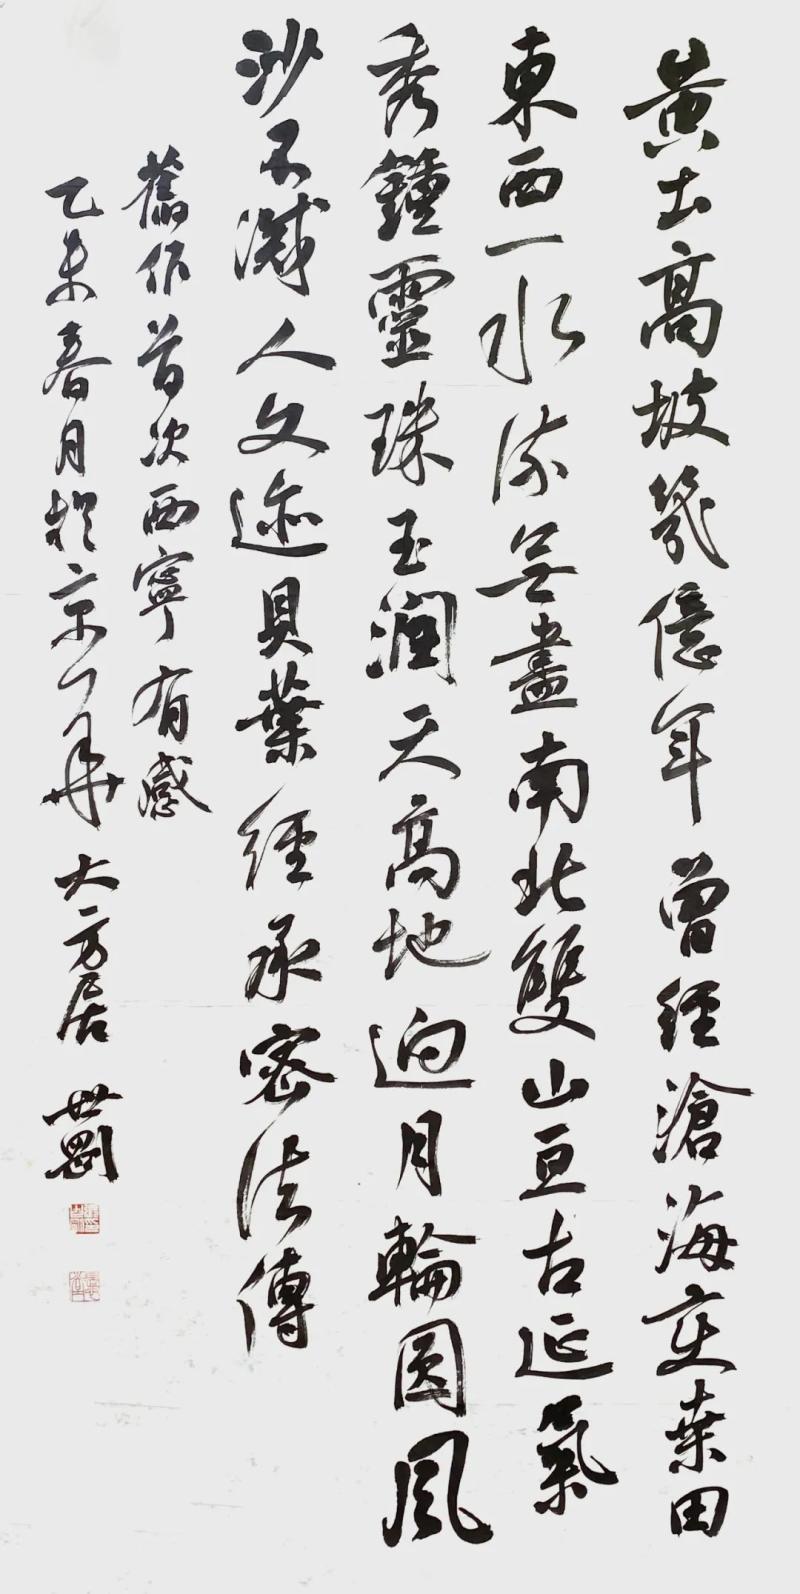 黃土高坡幾億年曾經滄海變桑田
東西一水流無盡南北雙山亘古延氣
秀鍾靈珠玉潤天高地迥月輪圓風
沙不減人文迹貝葉經承密法傳
舊作首次西寧有感
乙未春月於京华大方居 世劉